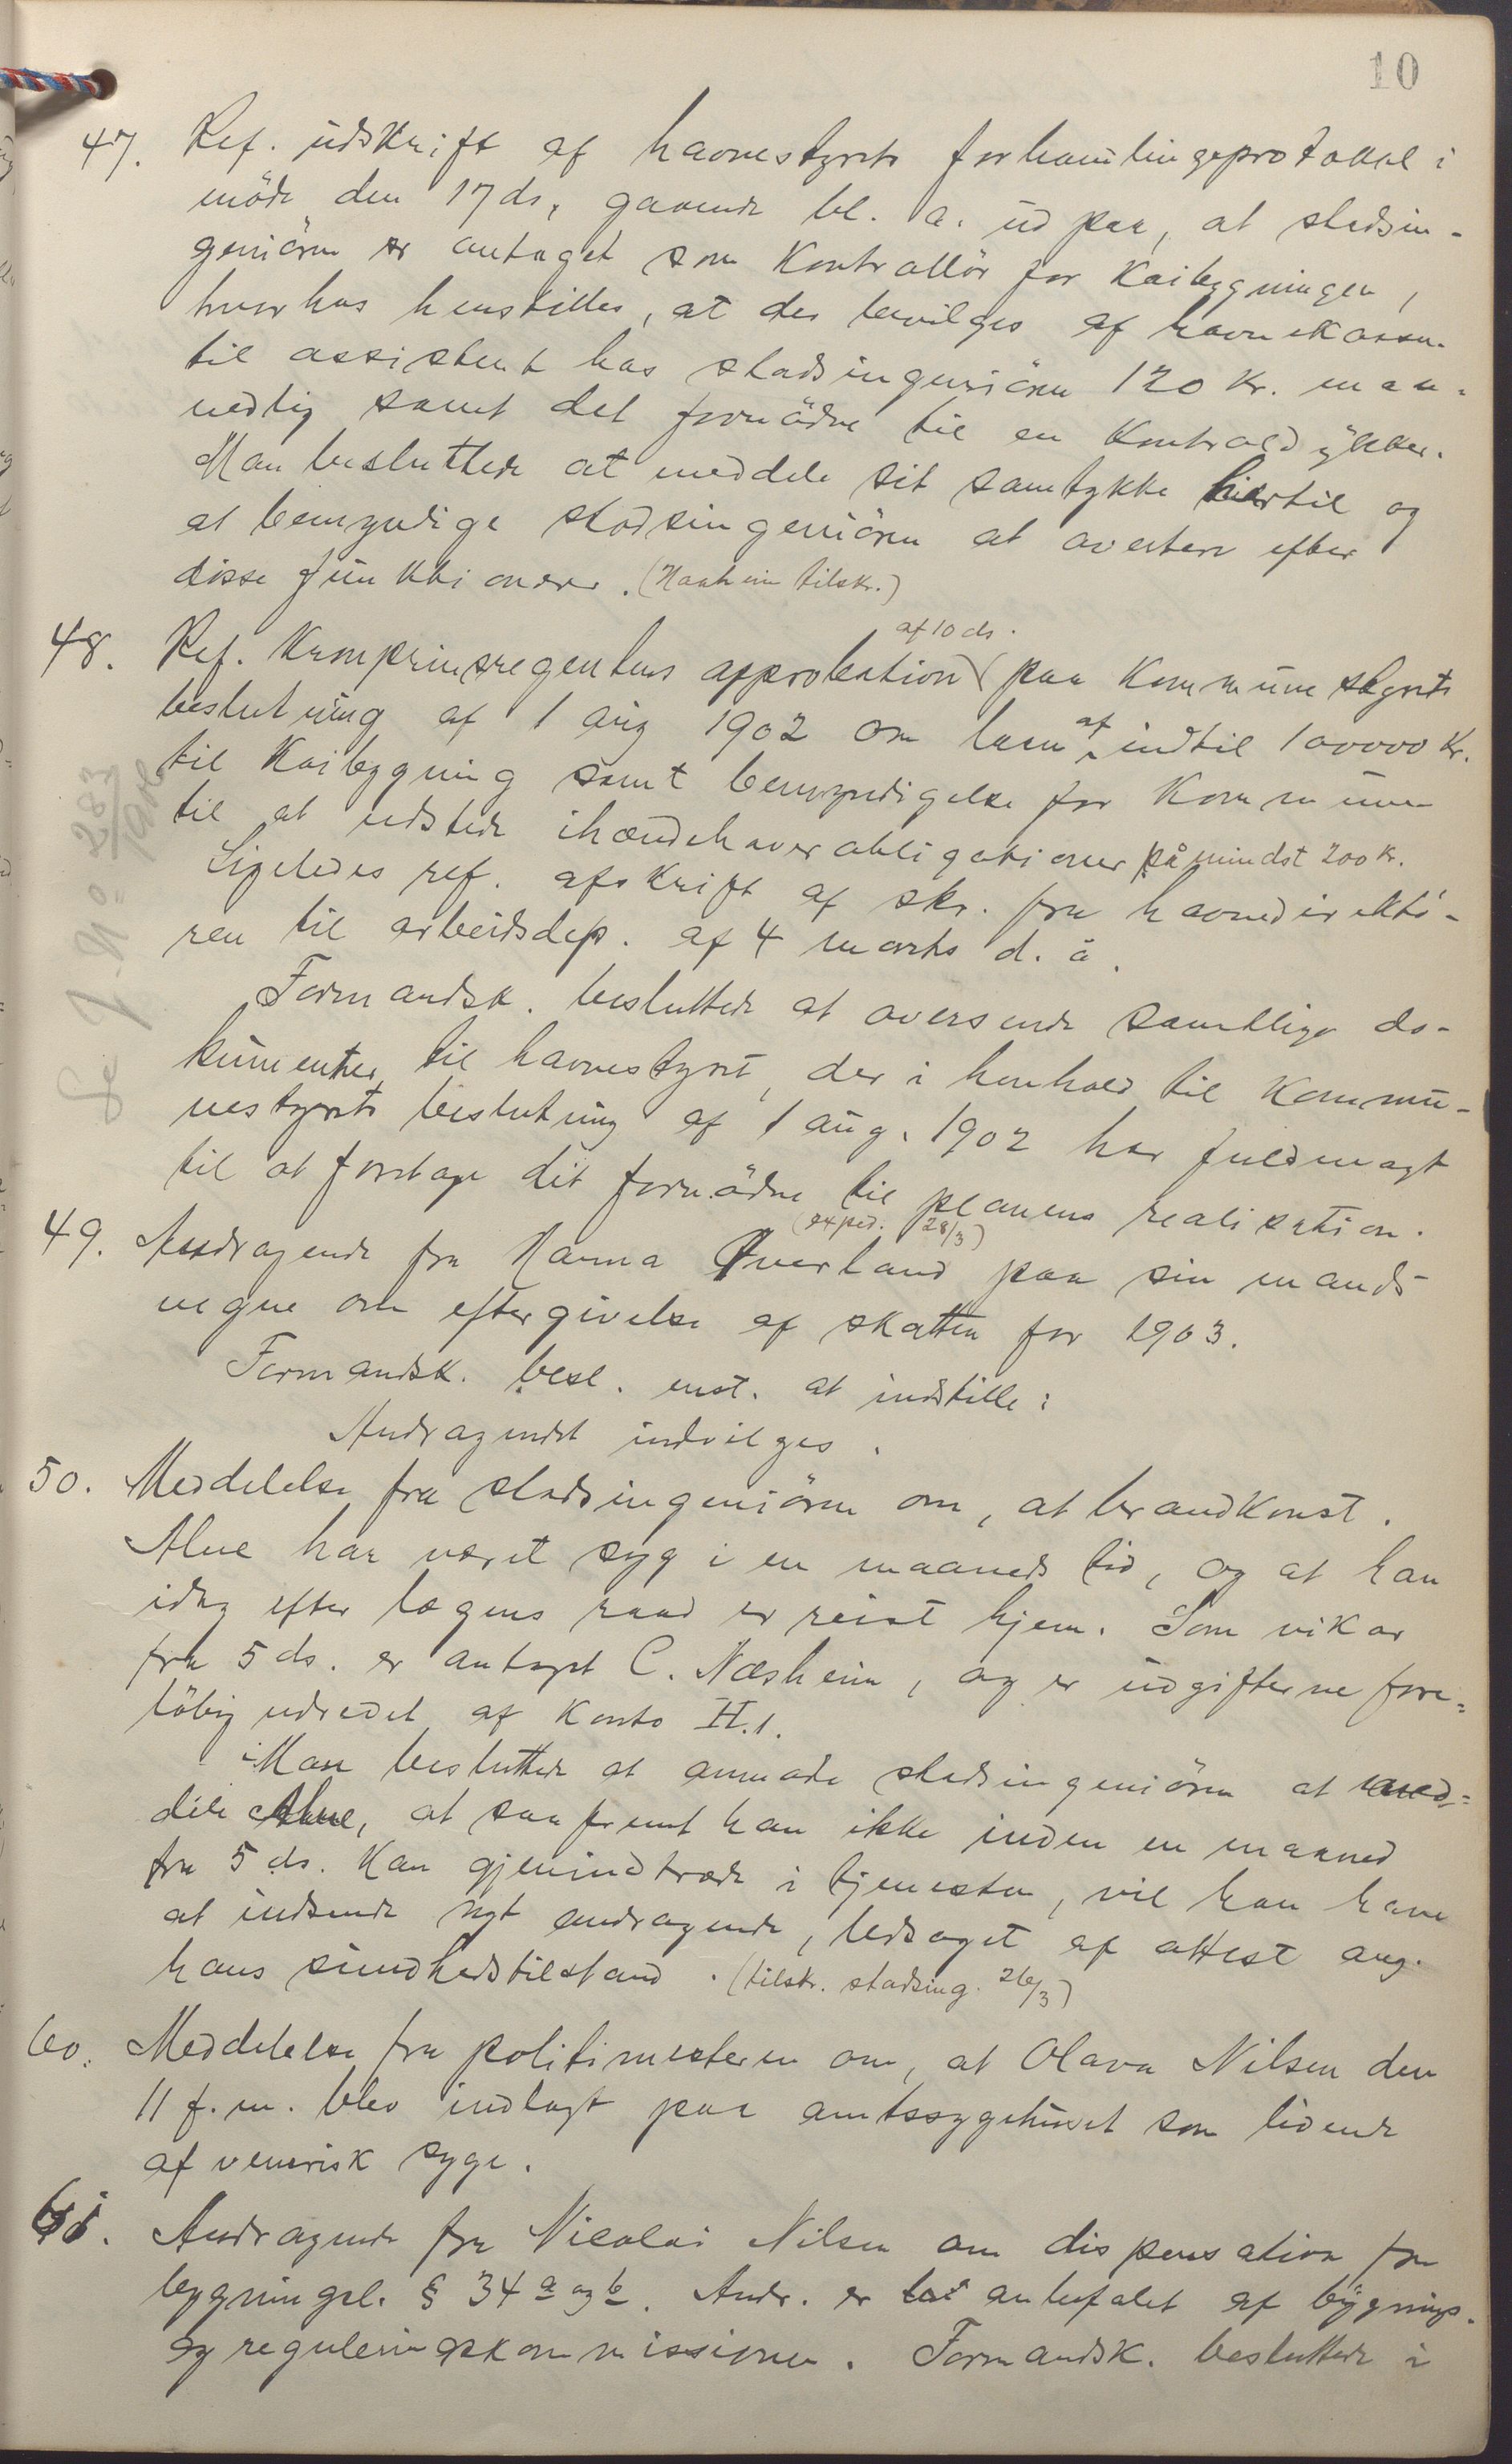 10
47. Ref. udskrift af havnestyrets forhandlingsprotokol i
möde den 17 ds, gaaende bl. a. ud paa, at stadsin-
geniören er antaget som kontrollör for kaibygningen,
hvorhos henstilles, at der bevilges af havnekassen
til assistent hos stadsingeniören 120 kr. maa-
nedlig samt det fornödne til en kontroldykker.
Man besluttede at meddele sit samtykke hertil og
at bemyndige stadsingeniören at avertere efter
disse funktionærer. (Havnein tilskr.)
af 10 ds.
48. Ref. Kronprinsregentens approbation paa kommunestyrets
beslutning af 1 aug 1902 om laan af indtil 100000 kr.
til kaibygning samt bemyndigelse for kommunen
til at udstede ihændehaverobligationer på mindst 200 kr.
Ligeledes ref. afskrift af skr. fra havnedirektö-
ren til arbeidsdep. af 4 marts d. å.
Se J. No 283/1902
Formandsk. besluttede at oversende samtlige do-
kumenter til havnestyret, der i henhold til kommu-
nestyrets beslutning af 1 aug. 1902 har fuldmagt
til at foretage det fornödne til planens realisation.
(exped. 28/3)
49. Andragende fra Hanna Øverland paa sin mands
vegne om eftergivelse af skatten for 1903.
Formandsk. besl. enst. at indstille:
Andragendet indvilges.
50. Meddelelse fra stadsingeniören om, at brandkonst.
Alne har været syg i en maaneds tid, og at han
idag efter lægens raad er reist hjem. Som vikar
fra 5 ds. er antaget C. Næsheim, og er udgifterne fore-
löbig udredet af konto II.1.
Man besluttede at anmode stadsingeniören at med-
dele Alne, at saafremt han ikke inden en maaned
fra 5 ds. kan gjenindtræde i tjenesten, vil han have
at indsende nyt andragende, ledsaget af attest ang.
hans sundhedstilstand. (tilskr. stadsing. 26/3)
60. Meddelelse fra politimesteren om, at Olava Nilsen den
11 f. m. blev indlagt paa amtssygehuset som lidende
af venerisk syge.
61. Andragende fra Nicolai Nilsen om dispensation fra
bygningsl. § 34 a og b. Andr. er anbefalet af bygnings-
og reguleringskommissionen. Formandsk. besluttede i